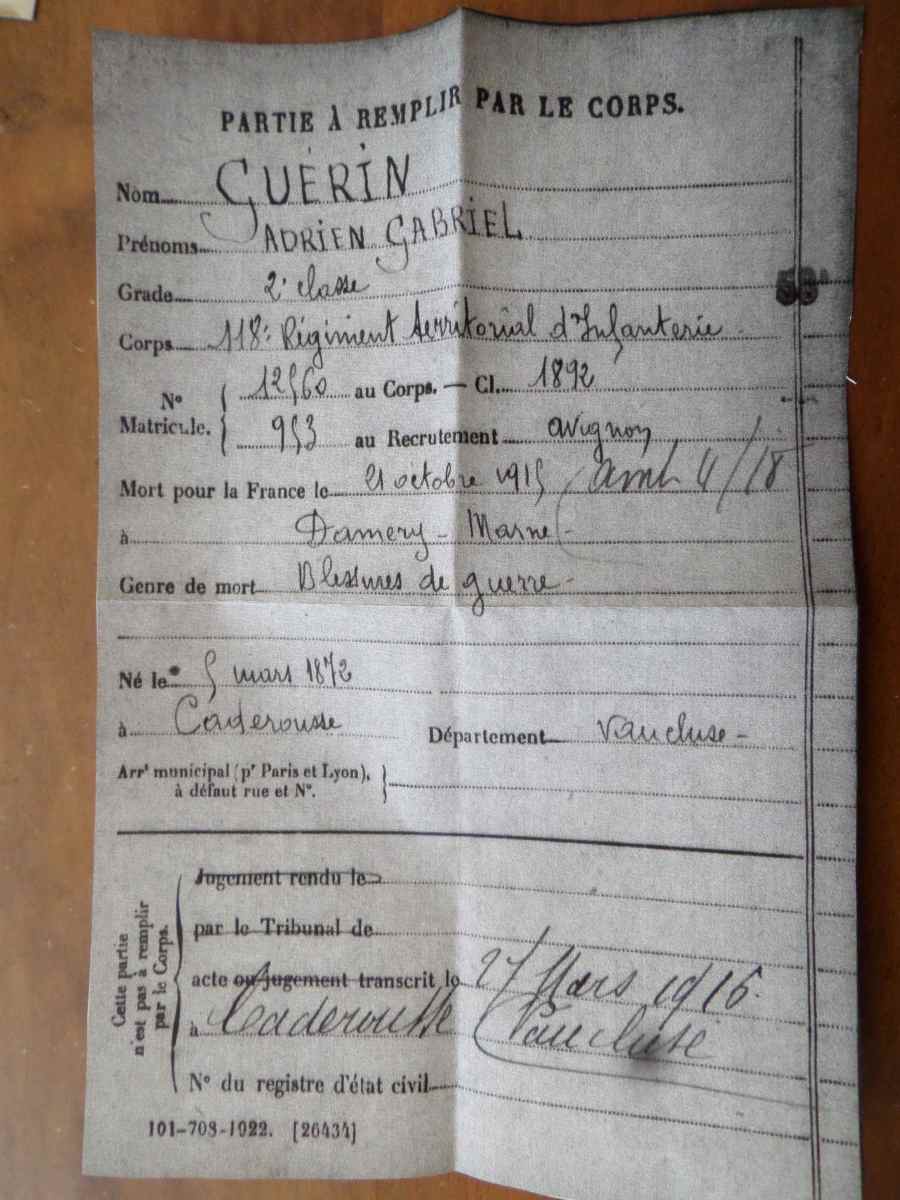 PARTIE À REMPLIR PAR LE CORPS.
Nom GUÉRIN
Prénoms ADRIEN GABRIEL
Grade 2e classe
Corps 118e Régiment territorial d'Infanterie
N° Matricule. { 12560 au Corps. — Cl. 1892
953 au Recrutement avignon
Mort pour la France le 21 octobre 1915 4/18
à Damery - Marne -
Genre de mort Blessures de guerre -
Né le 5 mars 1872
à Caderousse Département Vaucluse -
Arrt municipal (pr Paris et Lyon), à défaut rue et N°. }
Cette partie n'est pas à remplir par le Corps.
Jugement rendu le
par le Tribunal de
acte ou jugement transcrit le 27 Mars 1916.
à Caderousse (Vaucluse
N° du registre d'état civil
101-708-1922. [26434]